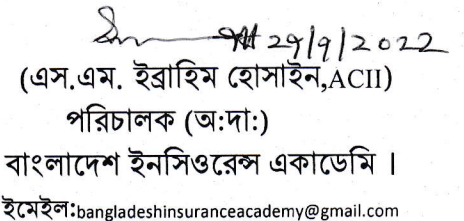 29/9/2022
(এস.এম. ইব্রাহিম হোসাইন,ACII)
পরিচালক (অ:দা:)
বাংলাদেশ ইনসিওরেন্স একাডেমি ।
ইমেইল:bangladeshinsuranceacademy@gmail.com